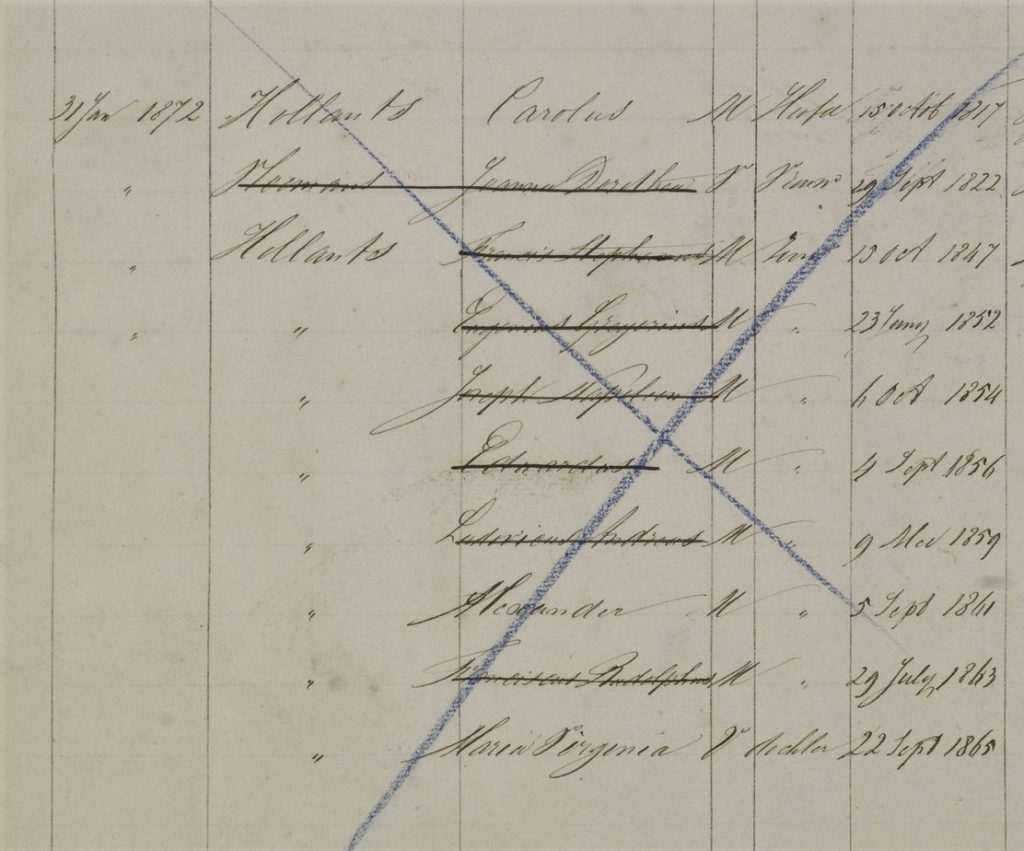 31 Jan 1872 Hollants Carolus M Hoofd 15 octob 1817
" Joanna Dorothea V Vrouw 29 Sept 1822
" Hollants Francis Stephanus M Zoon 13 Oct 1847
" " Eugenius Gregorius M " 23 Jany 1852
" Joseph Napoleon M " 6 Oct 1854
" Eduardus M " 4 Sept 1856
" Ludovicus Andreas M " 9 1859
" Alexander M " 5 Sept 1861
" Franciscus Rudolphus M " 29 July 1863
" Maria Virginia V dochter 22 Sept 1865